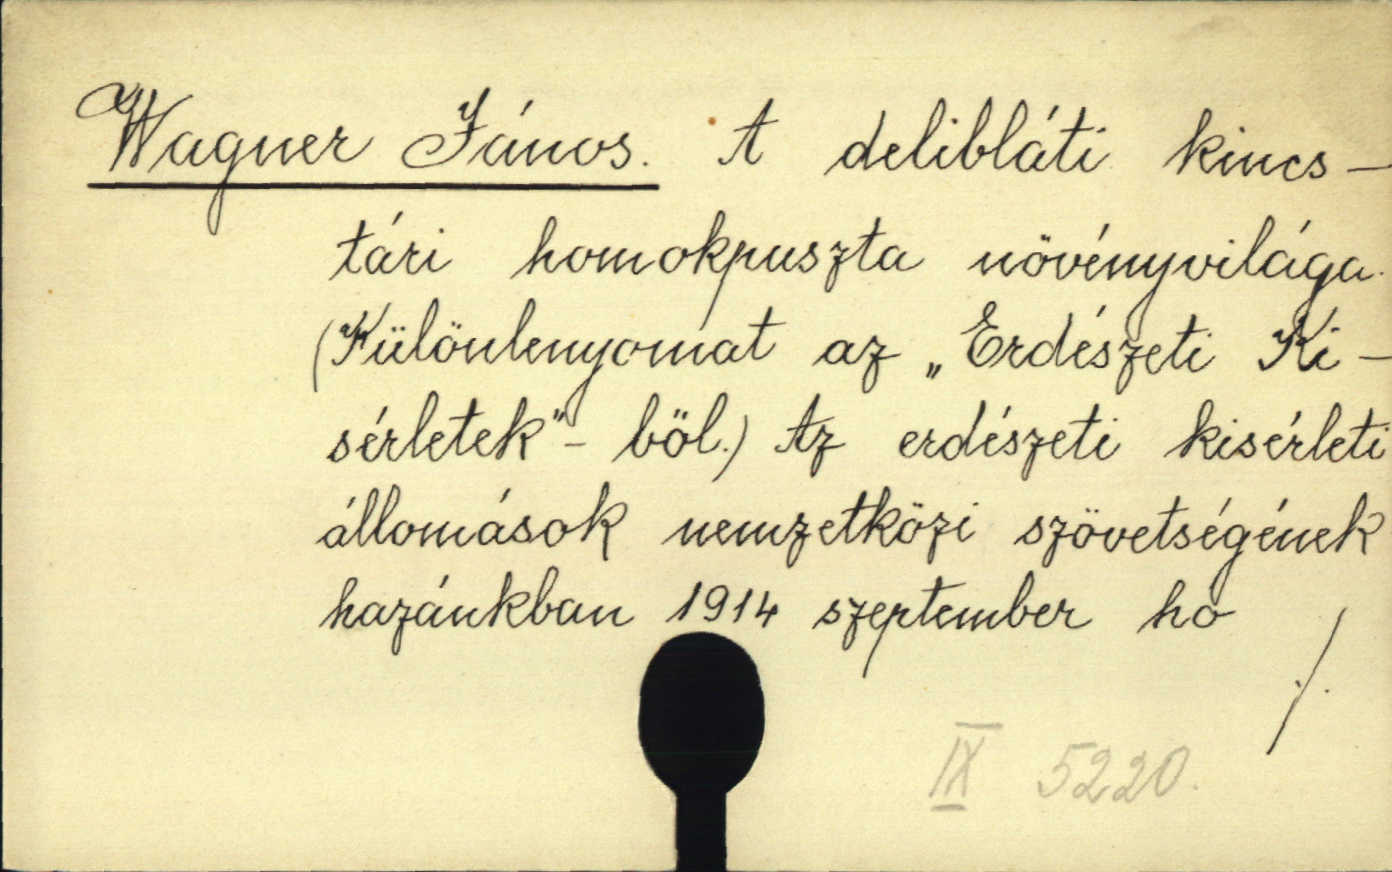 Wagner János. A delibláti kincs-
tári homokpuszta növényvilága.
(Különlenyomat az „Erdészeti Ki-
sérletek"- ből.) Az erdészeti kisérleti
állomások nemzetközi szövetségének
hazánkban 1914 szeptember ho
./.
IX 5220.